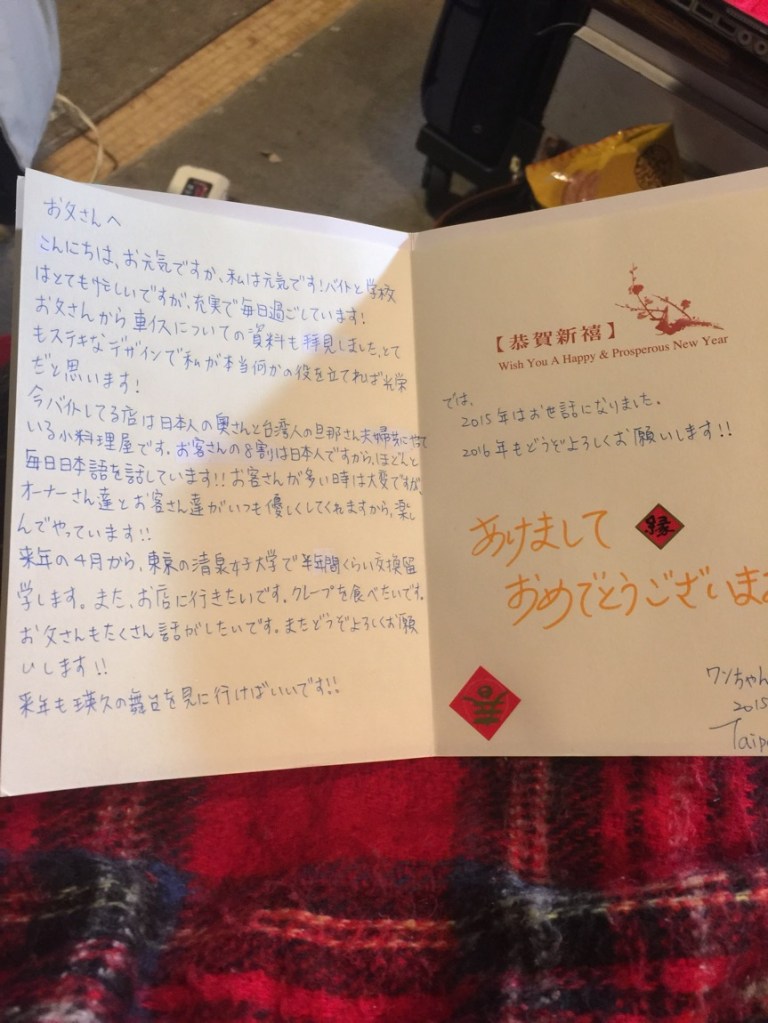 お父さんへ
こんにちは、お元気ですか、私は元気です!バイトと学校
はとても忙しいですが、充実で毎日過ごしています!
お父さんから車イスについての資料も拝見しました、とて
もステキなデザインで私が本当何かの役を立てれば光栄
だと思います!
今バイトしてる店は日本人の奥さんと台湾人の旦那さん夫婦
いる小料理屋です。お客さんの8割は日本人ですから、ほどんと
毎日日本語を話しています!!お客さんが多い時は大変ですが、
オーナーさん達とお客さん達がいつも優しくしてくれますから、楽し
んでやっています!!
来年の4月から、東京の清泉女子大学で半年間くらい交換留
学します。また、お店に行きたいです。クレープを食べたいです。
お父さんもたくさん話がしたいです。またどうぞよろしくお願
いします!!
来年も瑛久の舞台を見に行けばいいです!!
【恭賀新禧】
Wish You A Happy & Prosperous New Year
では、
2015年はお世話になりました。
2016年もどうぞよろしくお願いします!!
あけまして
縁
おめでとうございま
春
ワンちゃん
2015
Taip